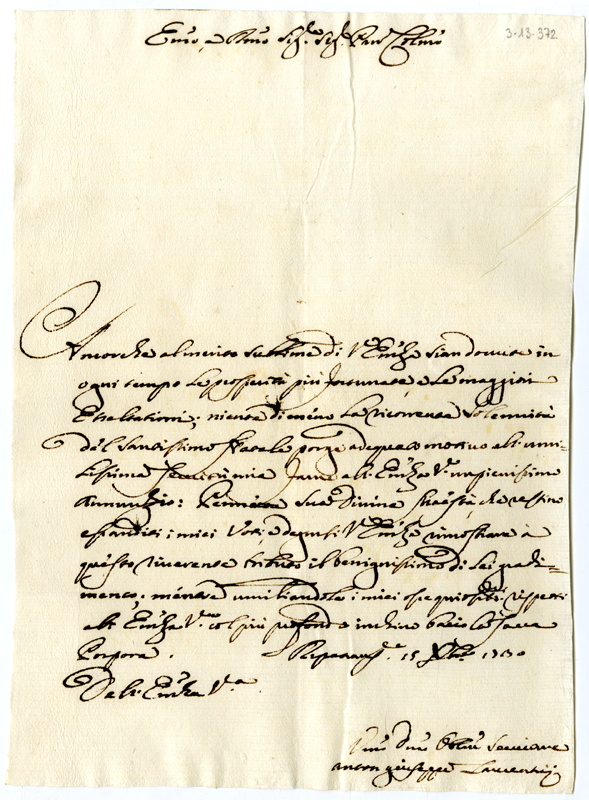 3-13-372
Emo, e Rmo Sig.re Sig.re Pron Colmo
Ancorche al merito sublime di V. Emza sian dovute in
ogni tempo le prosperità più fortunate, e le maggiori
Esaltationi; niente di meno la ricorrente Solennità
del Santissimo Natale porge adequato motivo all' umi-
lissima servitù mia farne all' Emza V. un pienissimo
Annunzio: Permetta Sua Divina Maestà che restino
esauditi i miei Voti, e degnisi V. Emza dimostrare à
questo riverente tributo il benignissimo di Lei gradi=
mento. mentre umiliandole i miei ossequiosissi. rispetti
all' Emza V.ra col più profondo inchino bacio la Sacra
Porpora.
15 Xbre 1730
Dell' Emza V.ra
Umo Dmo Oblmo Servitore
Anton Giuseppe Laurentij